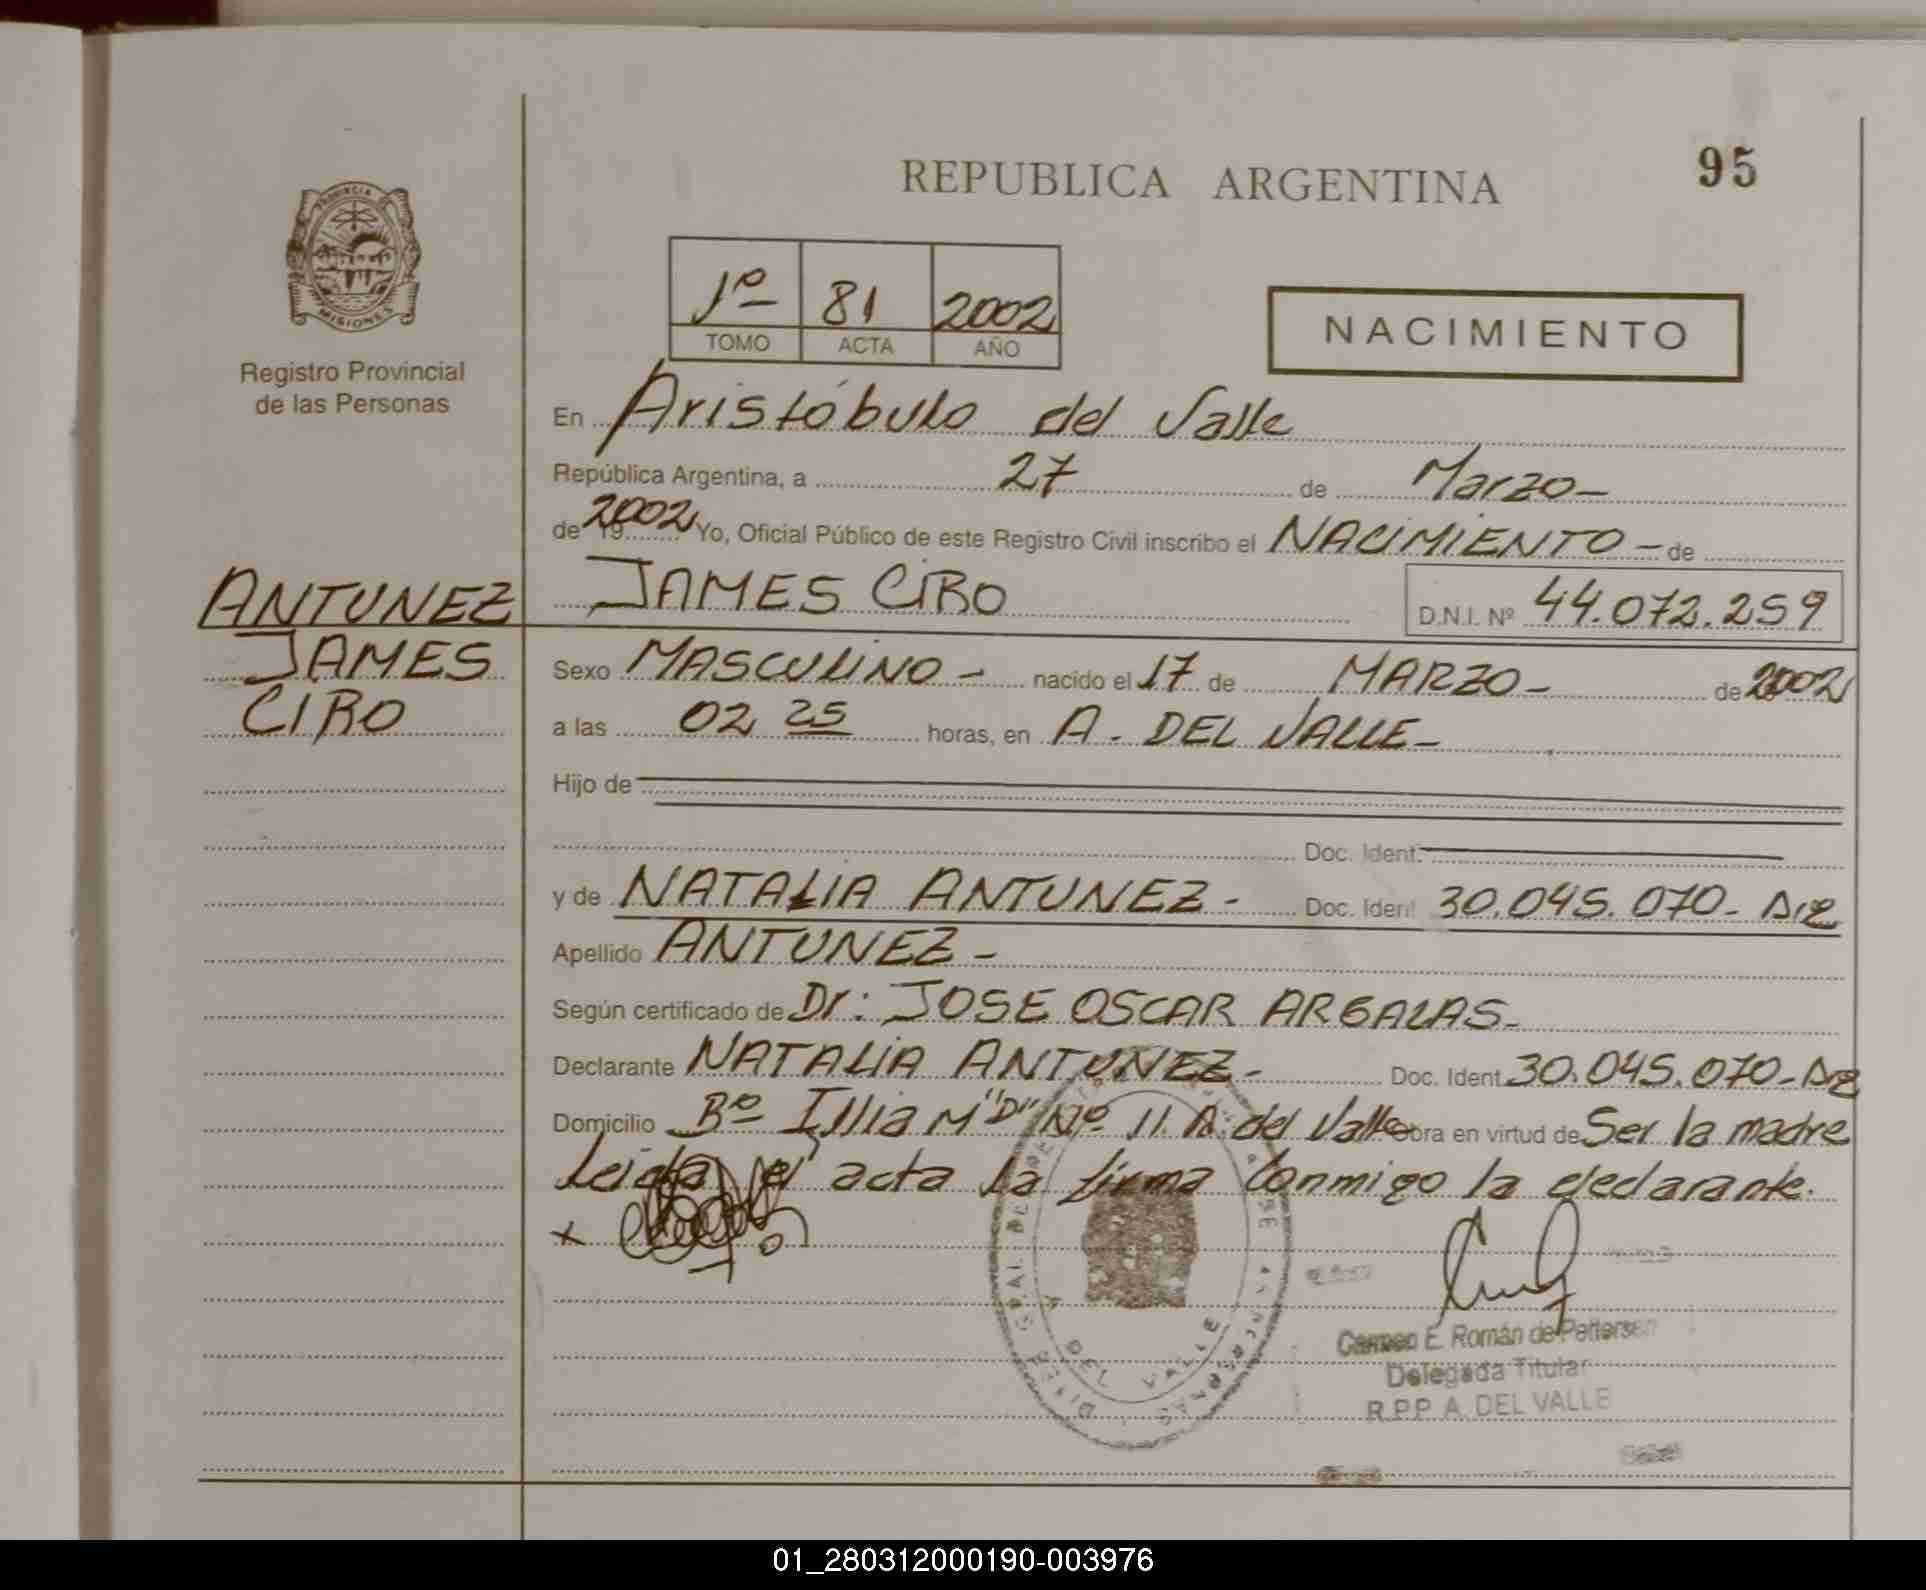 REPUBLICA ARGENTINA
95
PROVINCIA DE
MISIONES
Registro Provincial
de las Personas
1º 81 2002
TOMO ACTA AÑO
NACIMIENTO
En Aristóbulo del Valle
República Argentina, a 27 de Marzo-
de 19 2002 Yo, Oficial Público de este Registro Civil inscribo el NACIMIENTO - de
JAMES CIRO D.N.I. Nº 44.072.259
ANTUNEZ
JAMES
CIRO
Sexo MASCULINO - nacido el 17 de MARZO - de 2002
a las 02 25 horas, en A. DEL VALLE-
Hijo de
Doc. Ident.
y de NATALIA ANTUNEZ - Doc. Ident 30.045.070-
Apellido ANTUNEZ -
Según certificado de Dr: JOSE OSCAR ARGALAS-
Declarante NATALIA ANTUNEZ - Doc. Ident 30.045.070-
Domicilio Bº Illia M"D" Nº 11. A. del Valle Obra en virtud de Ser la madre
Leida el acta la firma Conmigo la declarante.
x
A DEL VALLE
Carmen E. Román de Pettersen
Delegada Titular
R.P.P. A. DEL VALLE
01_280312000190-003976